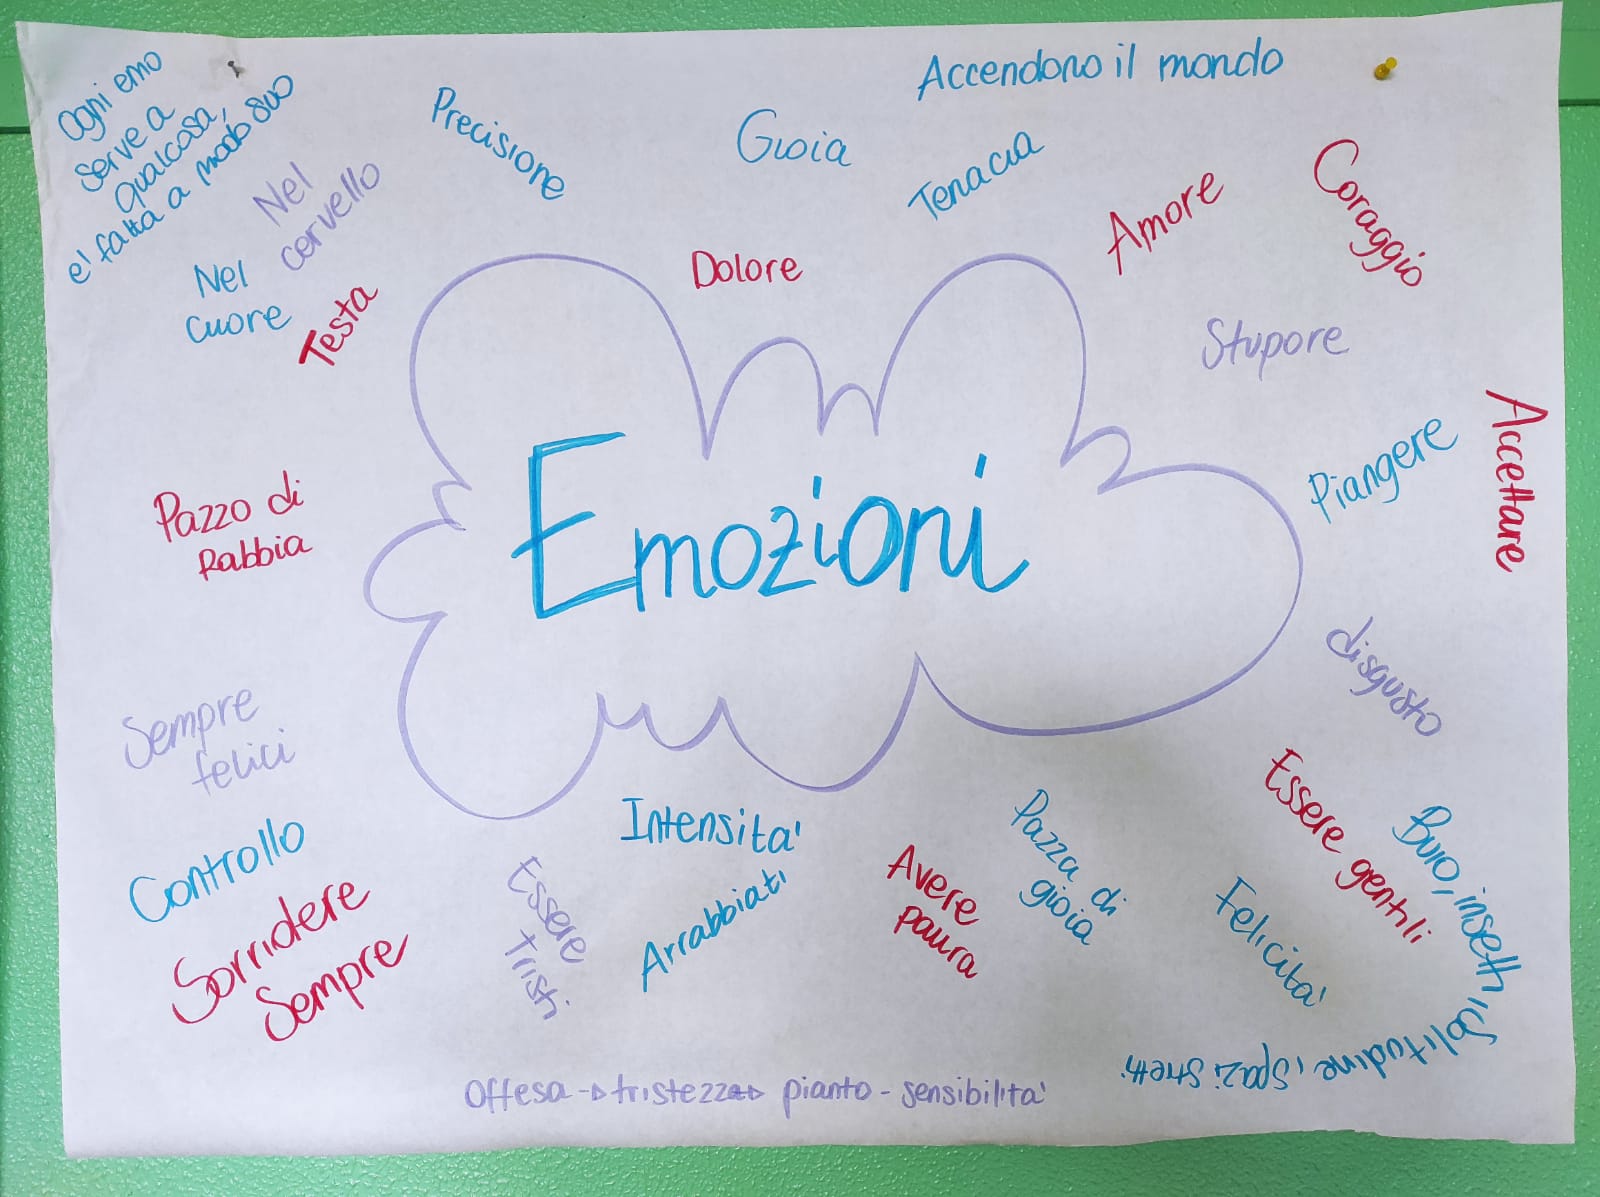 Ogni emo
serve a
qualcosa,
e' fatta a modo suo
Nel
cervello
Nel
cuore
Testa
Precisione
Gioia
Accendono il mondo
Tenacia
Dolore
Amore
Coraggio
Stupore
Piangere
Accettare
Emozioni
Pazzo di
Rabbia
disgusto
Sempre
felici
Controllo
Sorridere
Sempre
Essere
tristi
Intensita'
Arrabbiati
Avere
paura
Pazza di
gioia
Felicita'
Essere gentili
Buio, insetti, solitudine, spazi stretti
Offesa -> tristezza -> pianto - sensibilita'